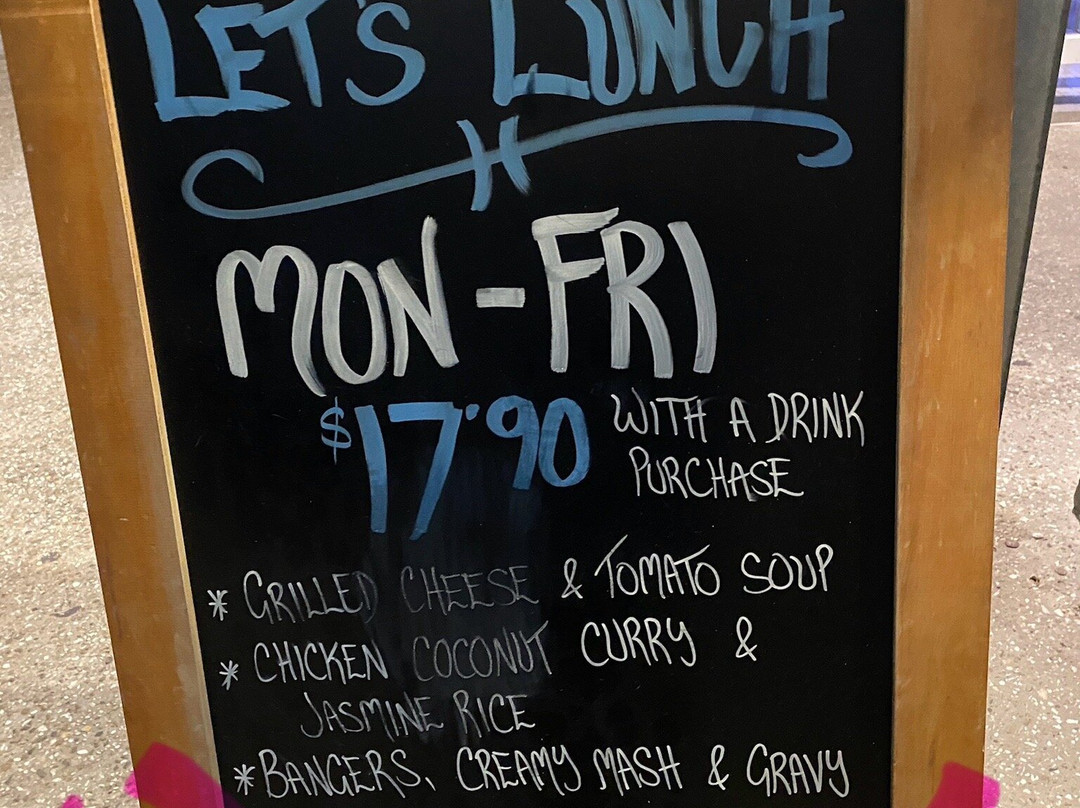 LET'S LUNCH
MON-FRI
$17.90 WITH A DRINK
PURCHASE
* GRILLED CHEESE & TOMATO SOUP
* CHICKEN COCONUT CURRY &
JASMINE RICE
* BANGERS, CREAMY MASH & GRAVY